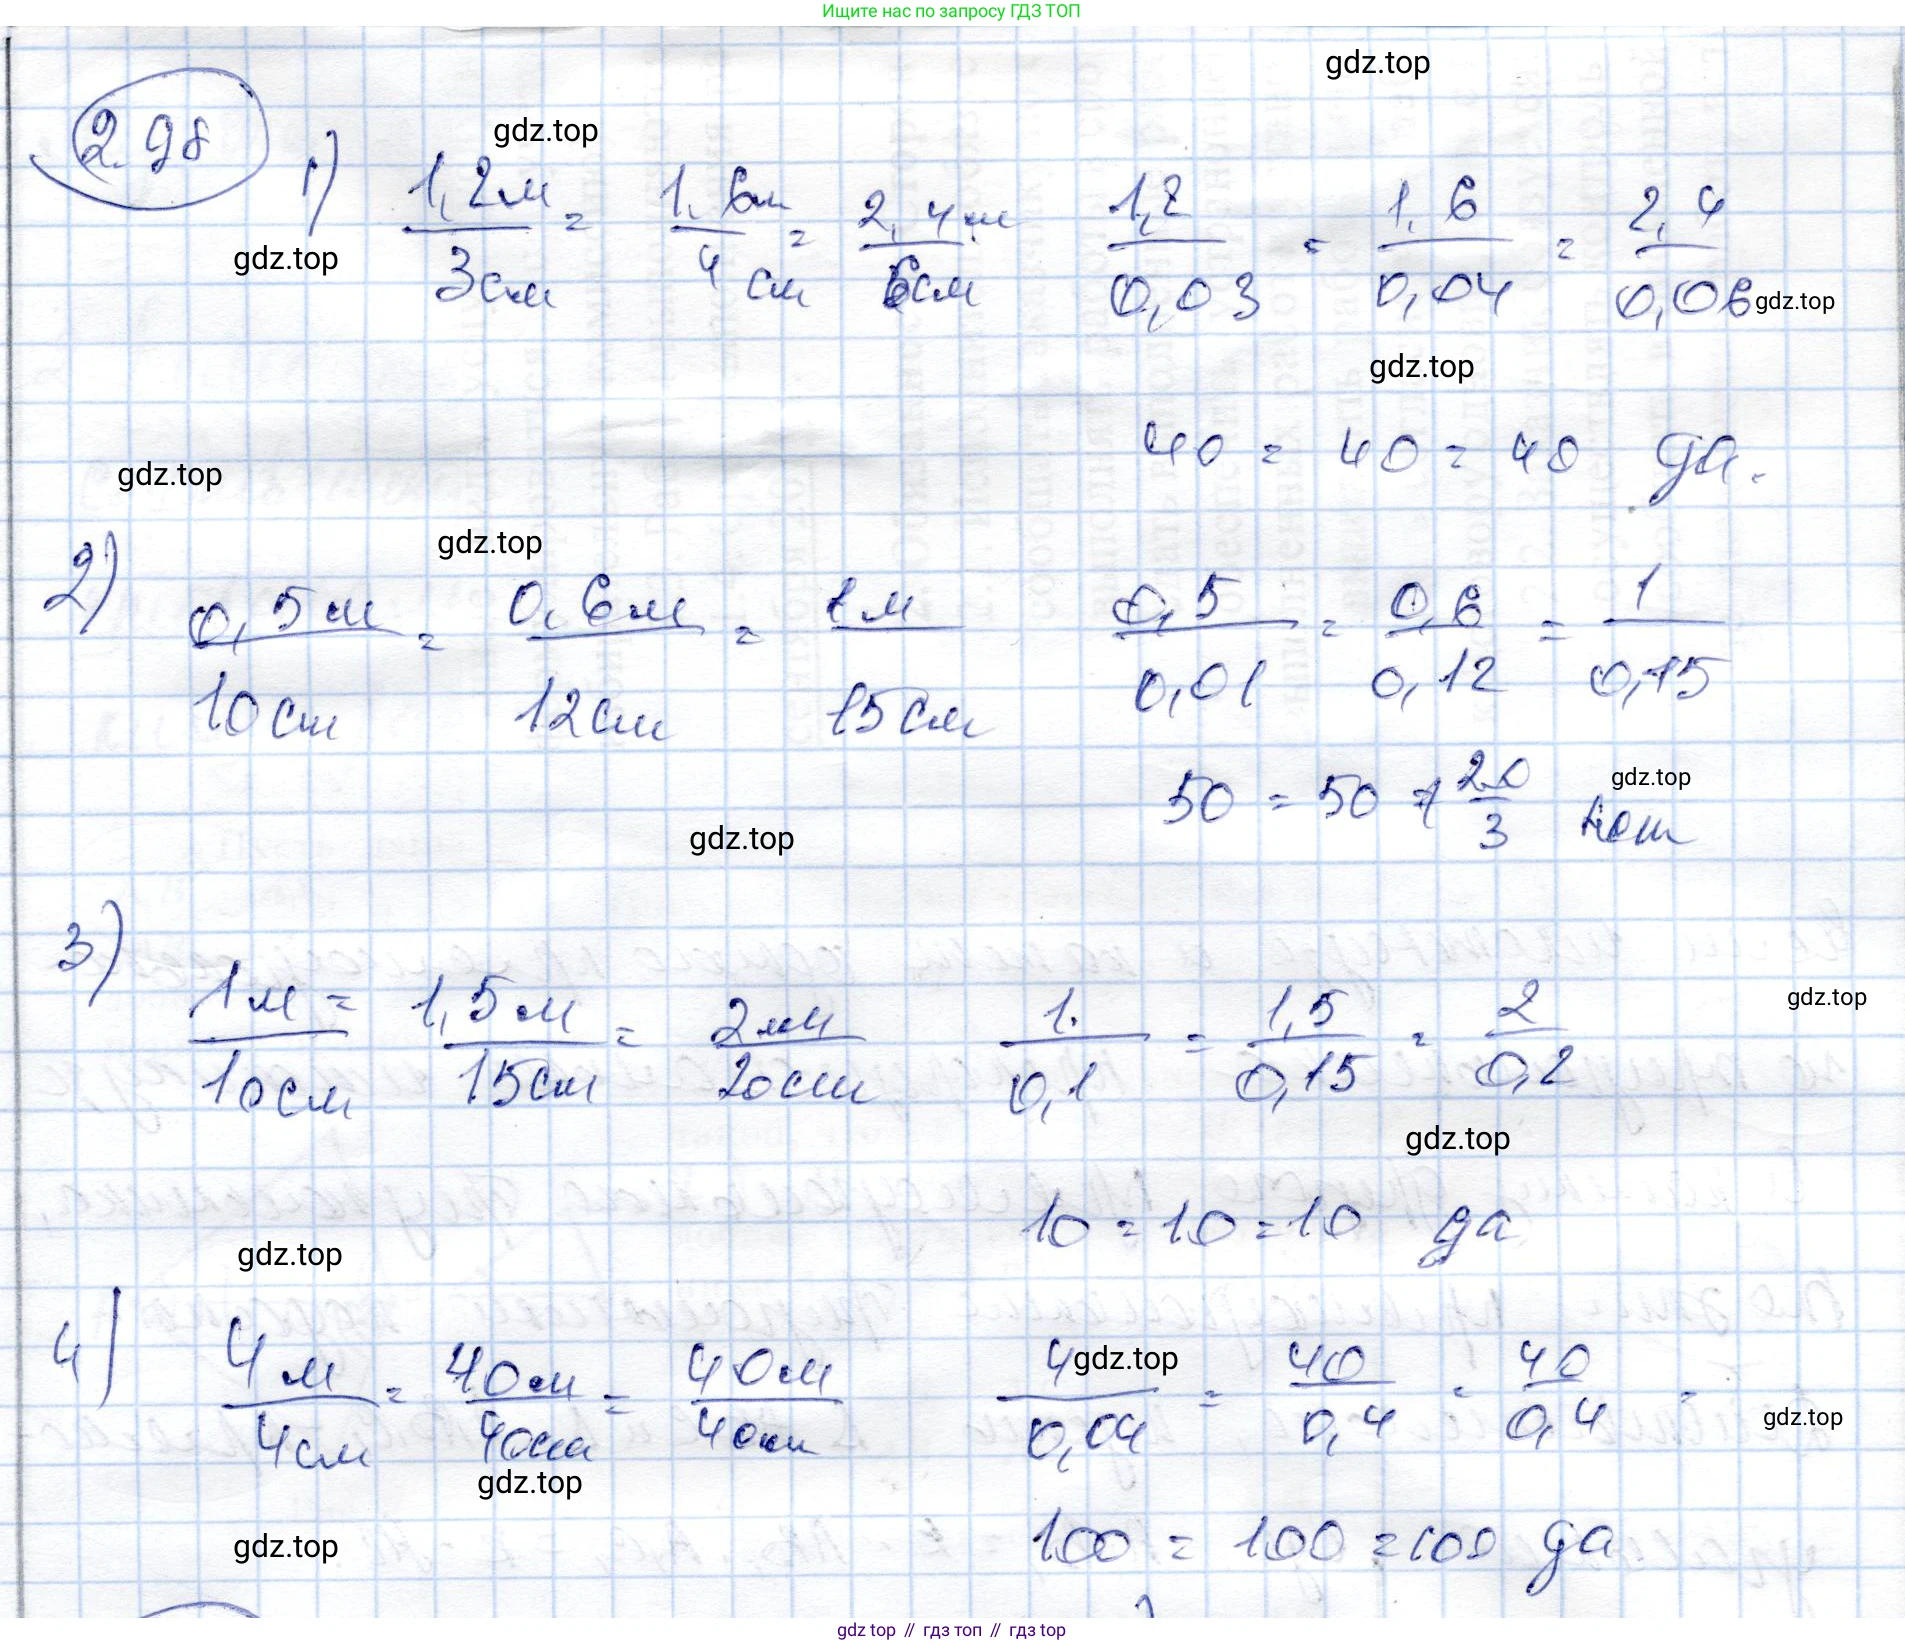 Ищите нас по запросу ГДЗ ТОП
gdz.top
gdz.top
2.98 1) 1,2м/3см = 1,6м/4см = 2,4м/6см 1,2/0,03 = 1,6/0,04 = 2,4/0,06
gdz.top gdz.top
gdz.top
40 = 40 = 40 да.
gdz.top
gdz.top
2) 0,5м/10см = 0,6м/12см = 1м/15см 0,5/0,01 = 0,6/0,12 = 1/0,15
50 = 50 ≠ 20/3 нет
gdz.top
gdz.top
3) 1м/10см = 1,5м/15см = 2м/20см 1/0,1 = 1,5/0,15 = 2/0,2
gdz.top
gdz.top
10 = 10 = 10 да
gdz.top
4) 4м/4см = 40м/40см = 40м/40см 4/0,04 = 40/0,4 = 40/0,4 =
gdz.top
gdz.top
gdz.top
100 = 100 = 100 да
gdz.top
gdz top // гдз топ // gdz top